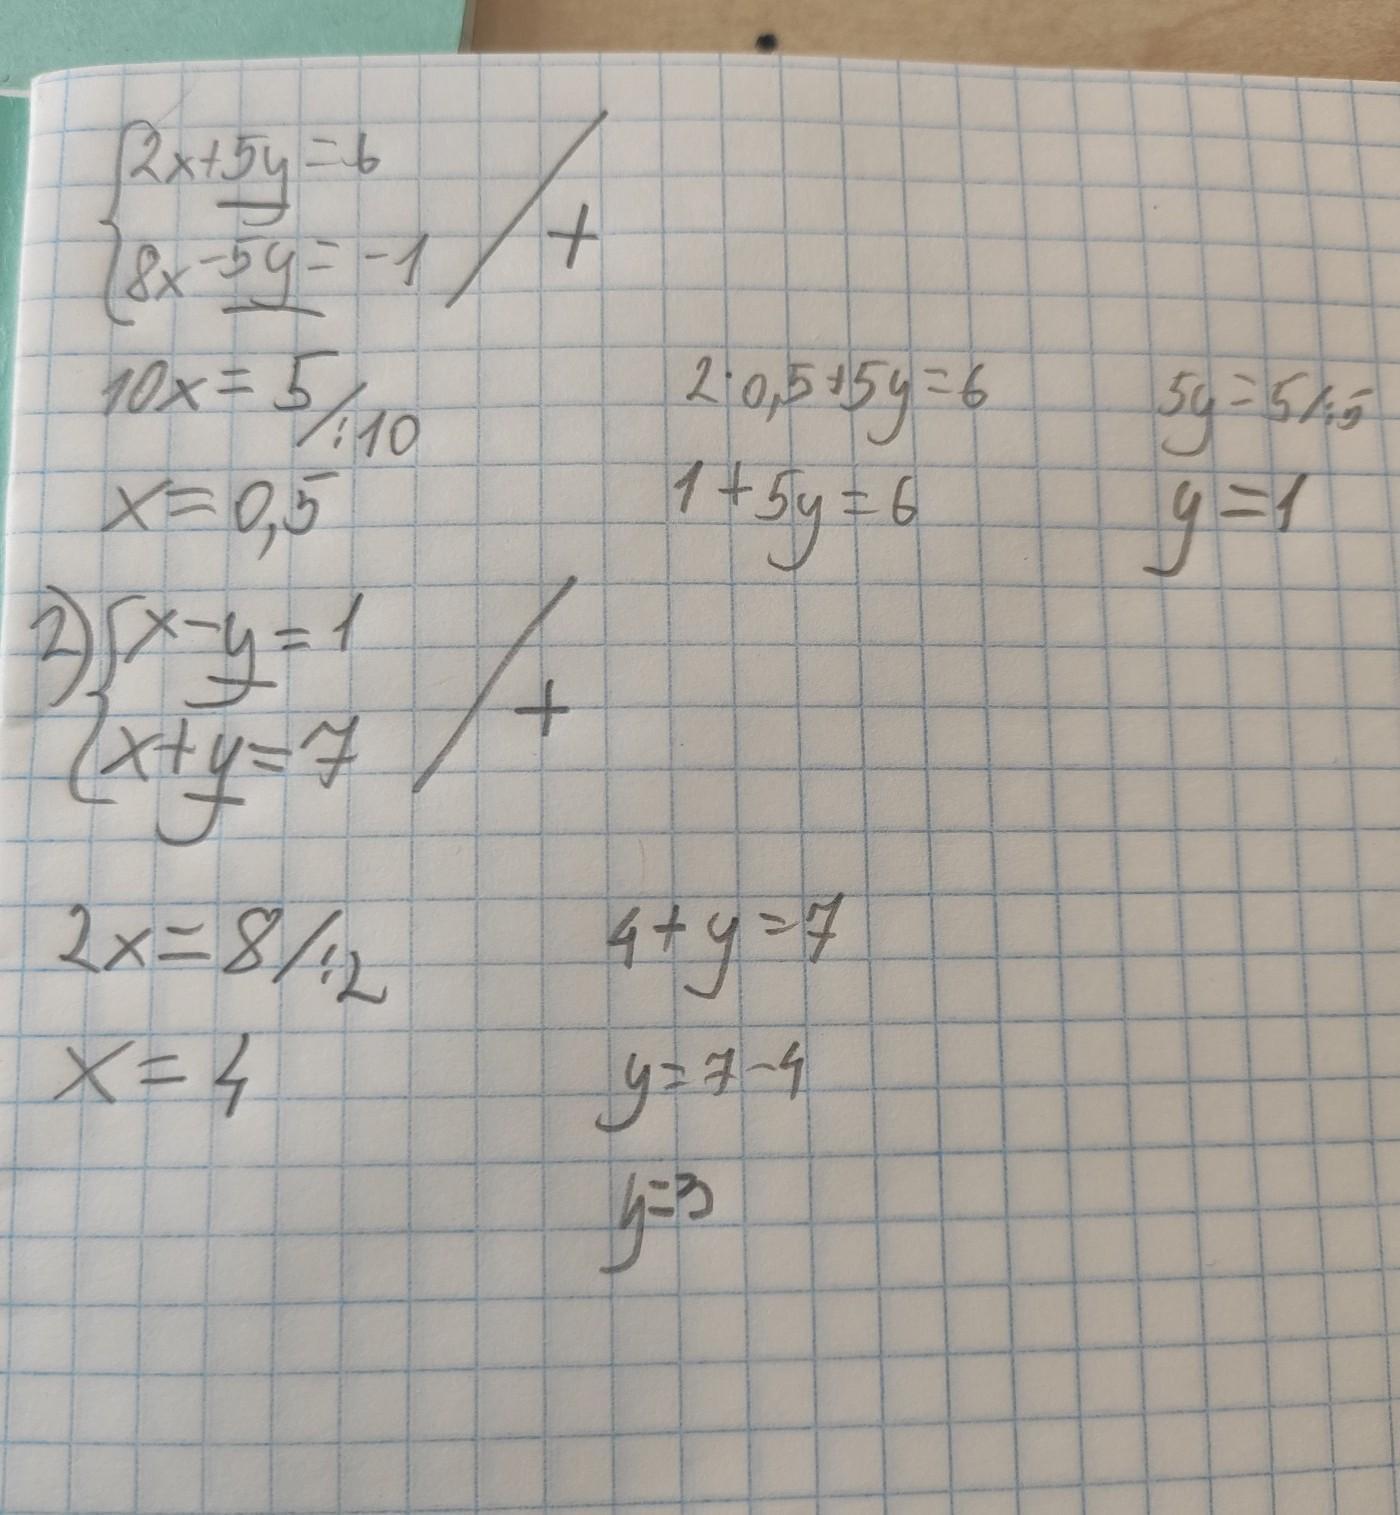 2x+5y=6
8x-5y=-1 / +
10x=5/:10
x=0,5
2·0,5+5y=6
1+5y=6
5y=5/:5
y=1
2) x-y=1
x+y=7 / +
2x=8/:2
x=4
4+y=7
y=7-4
y=3